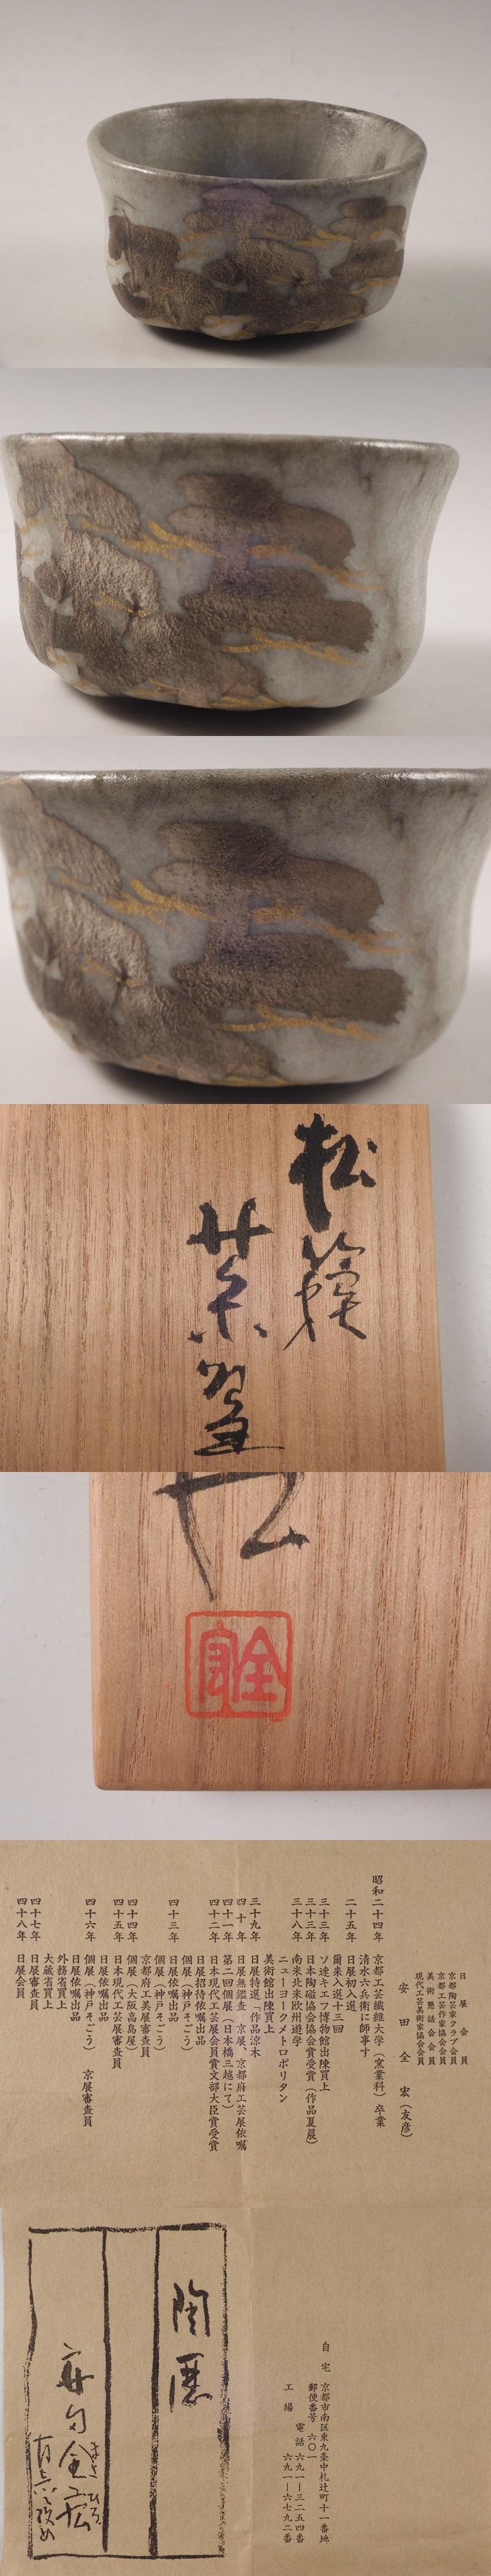 松籟
茶盌
全
日展会員
京都陶芸家クラブ会員
京都工芸作家協会会員
美術懇話会会員
現代工芸美術家協会会員
安田全宏(友彦)
昭和二十四年 京都工芸繊維大学(窯業科)卒業
清水六兵衛に師事す
二十五年 日展初入選
爾来入選十三回
三十三年 ソ連キエフ博物館出陳買上
三十三年 日本陶磁協会賞受賞(作品夏晨)
三十八年 南米北米欧州遊学
ニューヨークメトロポリタン
美術館出陳買上
三十九年 日展特選「作品涼木
四十年 日展無鑑査 京展、京都府工芸展依嘱
四十一年 第二回個展(日本橋三越にて)
四十二年 日本現代工芸展会員賞文部大臣賞受賞
日展招待依嘱出品
個展(神戸そごう)
四十三年 日展依嘱出品
個展(神戸そごう)
京都府工美展審査員
四十四年 個展(大阪高島屋)
四十五年 日本現代工芸展審査員
日展依嘱出品
四十六年 個展(神戸そごう) 京展審査員
日展依嘱出品
外務省買上
大蔵省買上
四十七年 日展審査員
四十八年 日展会員
自宅 京都市南区東九条中札辻町十一番地
郵便番号 六〇一
電話 六九一―三二五四番
工場 六九一―六七九二番
陶歴
安田全宏
まさひろ